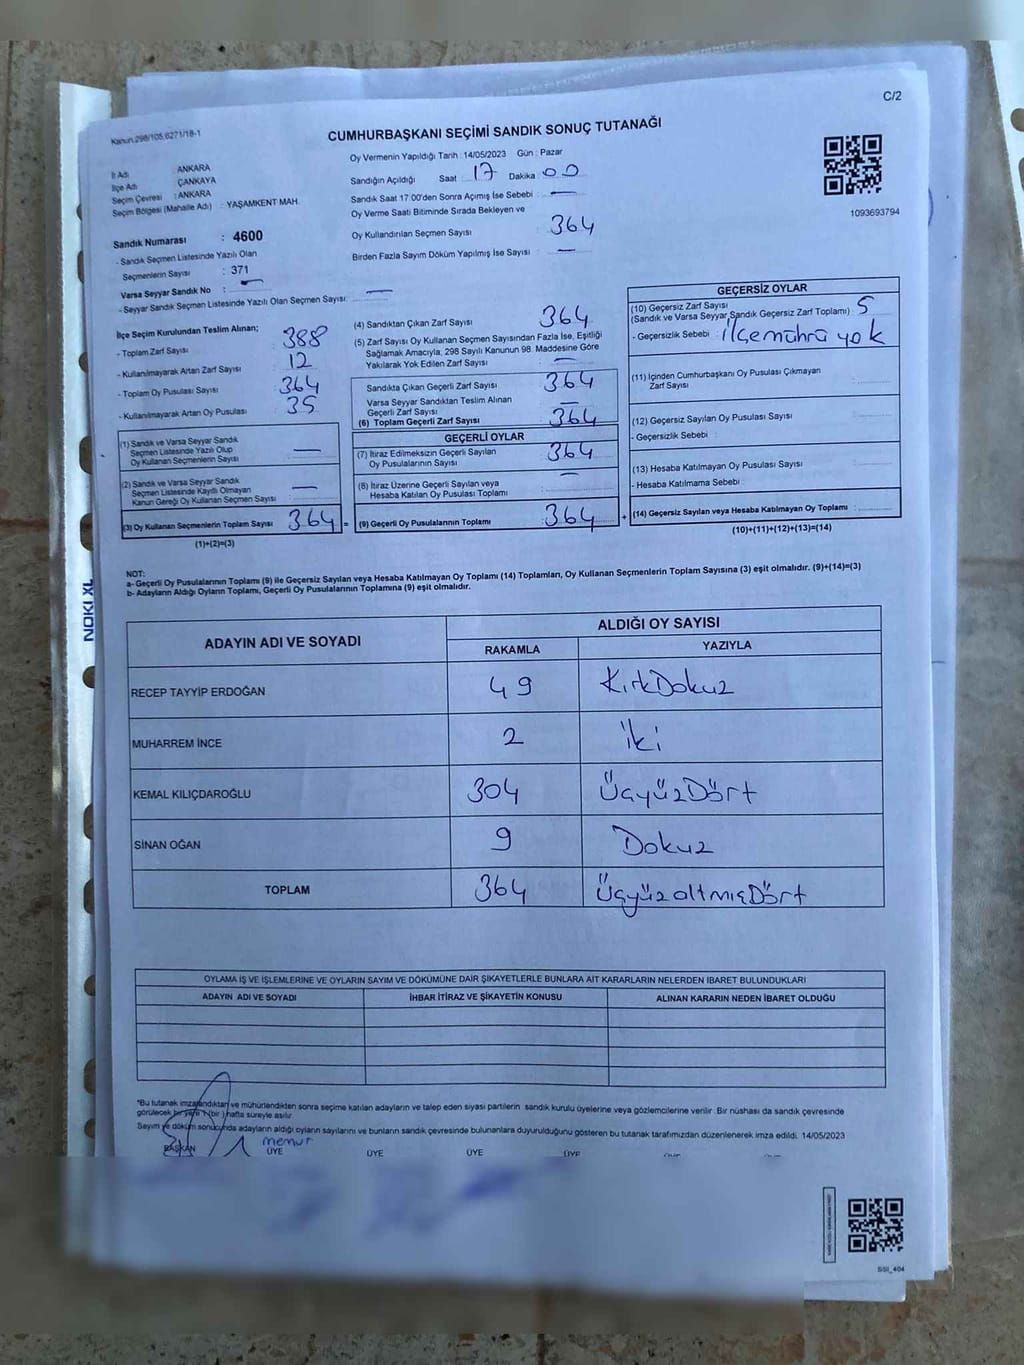 C/2
Kanun.298/105,6271/18-1
CUMHURBAŞKANI SEÇİMİ SANDIK SONUÇ TUTANAĞI
İl Adı ANKARA
İlçe Adı ÇANKAYA
Seçim Çevresi : ANKARA
Seçim Bölgesi (Mahalle Adı) : YAŞAMKENT MAH.
Oy Vermenin Yapıldığı Tarih : 14/05/2023 Gün : Pazar
Sandığın Açıldığı Saat 17 Dakika 00
Sandık Saat 17.00'den Sonra Açımış İse Sebebi : —
Oy Verme Saati Bitiminde Sırada Bekleyen ve
Oy Kullandırılan Seçmen Sayısı : 364
Birden Fazla Sayım Döküm Yapılmış İse Sayısı : —
1093693794
Sandık Numarası : 4600
- Sandık Seçmen Listesinde Yazılı Olan
Seçmenlerin Sayısı : 371
Varsa Seyyar Sandık No : —
- Seyyar Sandık Seçmen Listesinde Yazılı Olan Seçmen Sayısı: —
İlçe Seçim Kurulundan Teslim Alınan;
- Toplam Zarf Sayısı : 388
- Kullanılmayarak Artan Zarf Sayısı : 12
- Toplam Oy Pusulası Sayısı : 364
- Kullanılmayarak Artan Oy Pusulası : 35
(1) Sandık ve Varsa Seyyar Sandık
Seçmen Listesinde Yazılı Olup
Oy Kullanan Seçmenlerin Sayısı : —
(2) Sandık ve Varsa Seyyar Sandık
Seçmen Listesinde Kayıtlı Olmayan
Kanun Gereği Oy Kullanan Seçmen Sayısı : —
(3) Oy Kullanan Seçmenlerin Toplam Sayısı : 364 =
(1)+(2)=(3)
(4) Sandıktan Çıkan Zarf Sayısı : 364
(5) Zarf Sayısı Oy Kullanan Seçmen Sayısından Fazla İse, Eşitliği
Sağlamak Amacıyla, 298 Sayılı Kanunun 98. Maddesine Göre
Yakılarak Yok Edilen Zarf Sayısı : —
Sandıkta Çıkan Geçerli Zarf Sayısı : 364
Varsa Seyyar Sandıktan Teslim Alınan
Geçerli Zarf Sayısı : —
(6) Toplam Geçerli Zarf Sayısı : 364
GEÇERLİ OYLAR
(7) İtiraz Edilmeksizin Geçerli Sayılan
Oy Pusulalarının Sayısı : 364
(8) İtiraz Üzerine Geçerli Sayılan veya
Hesaba Katılan Oy Pusulası Toplamı : —
(9) Geçerli Oy Pusulalarının Toplamı : 364 +
GEÇERSİZ OYLAR
(10) Geçersiz Zarf Sayısı
(Sandık ve Varsa Seyyar Sandık Geçersiz Zarf Toplamı) : 5
- Geçersizlik Sebebi : ilçe mührü yok
(11) İçinden Cumhurbaşkanı Oy Pusulası Çıkmayan
Zarf Sayısı :
(12) Geçersiz Sayılan Oy Pusulası Sayısı :
- Geçersizlik Sebebi :
(13) Hesaba Katılmayan Oy Pusulası Sayısı :
- Hesaba Katılmama Sebebi :
(14) Geçersiz Sayılan veya Hesaba Katılmayan Oy Toplamı :
(10)+(11)+(12)+(13)=(14)
NOT:
a- Geçerli Oy Pusulalarının Toplamı (9) ile Geçersiz Sayılan veya Hesaba Katılmayan Oy Toplamı (14) Toplamları, Oy Kullanan Seçmenlerin Toplam Sayısına (3) eşit olmalıdır. (9)+(14)=(3)
b- Adayların Aldığı Oyların Toplamı, Geçerli Oy Pusulalarının Toplamına (9) eşit olmalıdır.
NOKI XL
ADAYIN ADI VE SOYADI ALDIĞI OY SAYISI
RAKAMLA YAZIYLA
RECEP TAYYİP ERDOĞAN 49 KırkDokuz
MUHARREM İNCE 2 iki
KEMAL KILIÇDAROĞLU 304 ÜçyüzDört
SİNAN OĞAN 9 Dokuz
TOPLAM 364 ÜçyüzaltmışDört
OYLAMA İŞ VE İŞLEMLERİNE VE OYLARIN SAYIM VE DÖKÜMÜNE DAİR ŞİKAYETLERLE BUNLARA AİT KARARLARIN NELERDEN İBARET BULUNDUKLARI
ADAYIN ADI VE SOYADI İHBAR İTİRAZ VE ŞİKAYETİN KONUSU ALINAN KARARIN NEDEN İBARET OLDUĞU
*Bu tutanak imzalandıktan ve mühürlendikten sonra seçime katılan adayların ve talep eden siyasi partilerin sandık kurulu üyelerine veya gözlemcilerine verilir .Bir nüshası da sandık çevresinde
görülecek bir yere 1 (bir ) hafta süreyle asılır.
Sayım ve döküm sonucunda adayların aldığı oyların sayılarını ve bunların sandık çevresinde bulunanlara duyurulduğunu gösteren bu tutanak tarafımızdan düzenlenerek imza edildi. 14/05/2023
memur
BAŞKAN ÜYE ÜYE ÜYE ÜYE
SSI_404